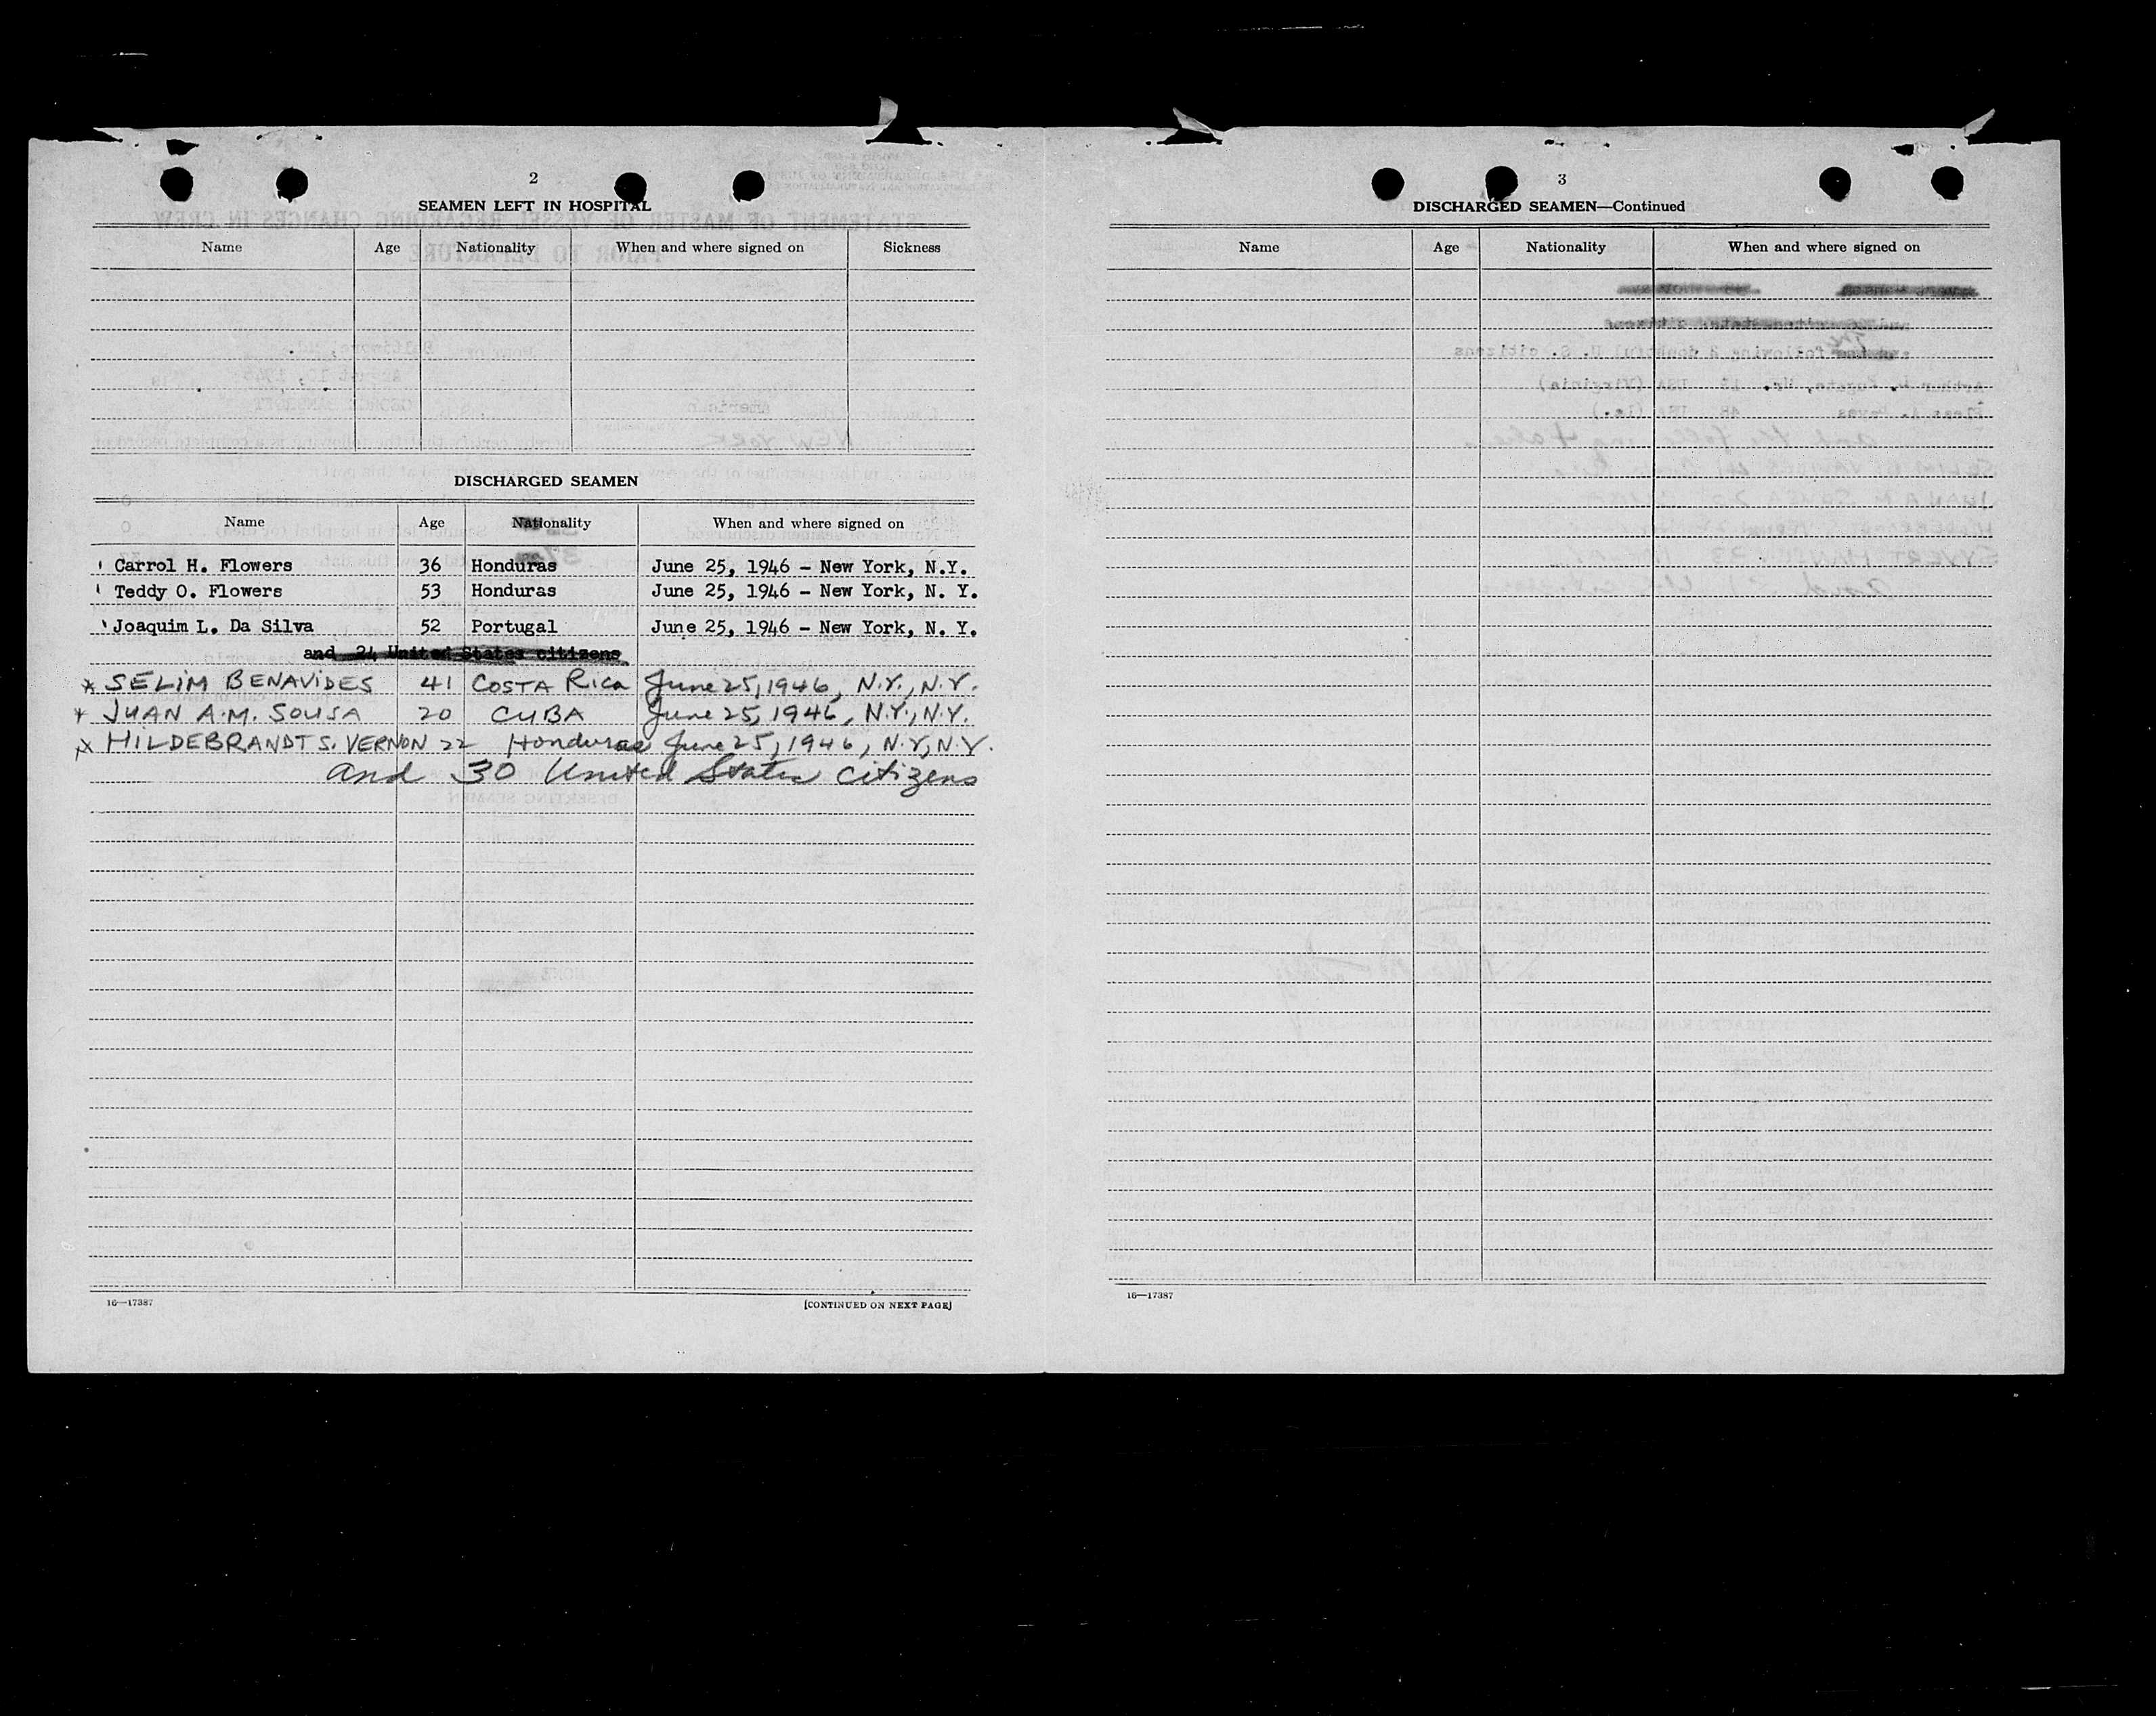 2
SEAMEN LEFT IN HOSPITAL
Name Age Nationality When and where signed on Sickness
DISCHARGED SEAMEN
Name Age Nationality When and where signed on
Carrol H. Flowers 36 Honduras June 25, 1946 - New York, N.Y.
Teddy O. Flowers 53 Honduras June 25, 1946 - New York, N. Y.
Joaquim L. Da Silva 52 Portugal June 25, 1946 - New York, N. Y.
and 24 United States citizens
SELIM BENAVIDES 41 COSTA Rica June 25, 1946, N.Y., N.Y.
JUAN A.M. SOUSA 20 CUBA June 25, 1946, N.Y., N.Y.
HILDEBRANDT S. VERNON 22 Honduras June 25, 1946, N.Y, N.Y.
and 30 United States citizens
16—17387
[CONTINUED ON NEXT PAGE]
3
DISCHARGED SEAMEN—Continued
Name Age Nationality When and where signed on
16—17387